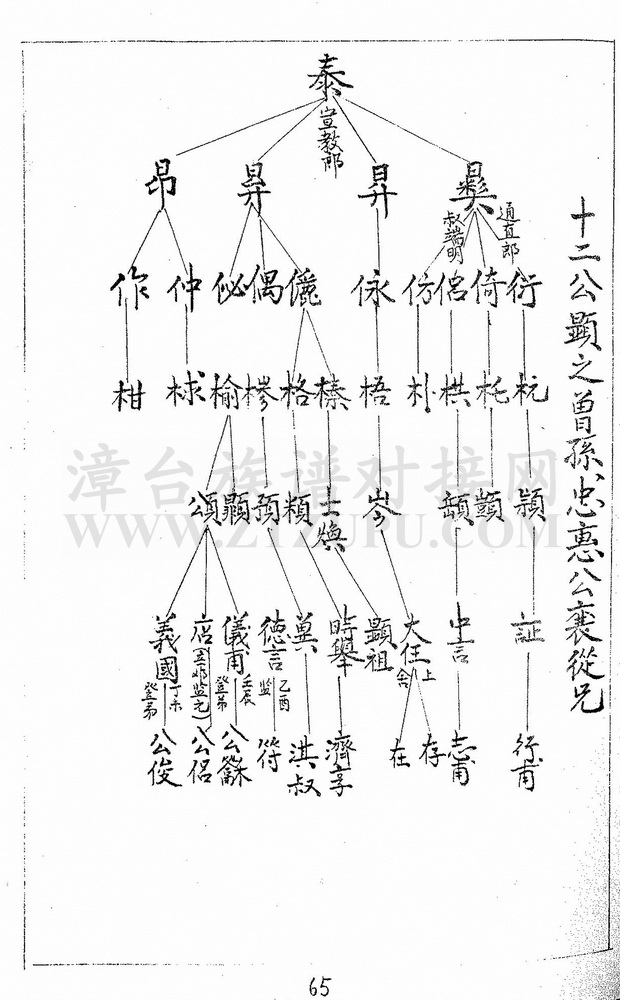 十二公顯之曾孫忠惠公襄從兄
泰
宣教郎
昇
昂
通直郎
叔端明
衍
倚
侶
仿
侎
儷
偶
佖
仲
作
杬
杔
栱
朴
梧
榛
格
槮
榆
梂
柑
顗
頴
岑
士煥
預
顯
頌
証
中言
大任
上舍
顯祖
時舉
異
德言
乙酉
監
儀甫
壬辰
登第
義國
丁未
登第
行甫
志甫
存
在
濟亨
洪叔
符
公龢
公侶
公俊
漳台族谱对接网
WWW.ZTZUPU.COM
65